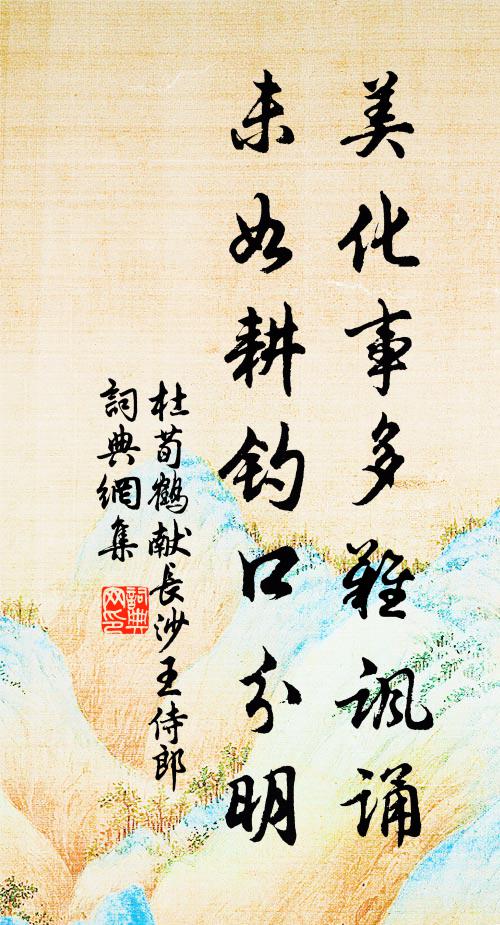 美化事多難諷誦
未如耕釣口分明
杜荀鶴献長沙王侍郎
詞典網集
詞典網印